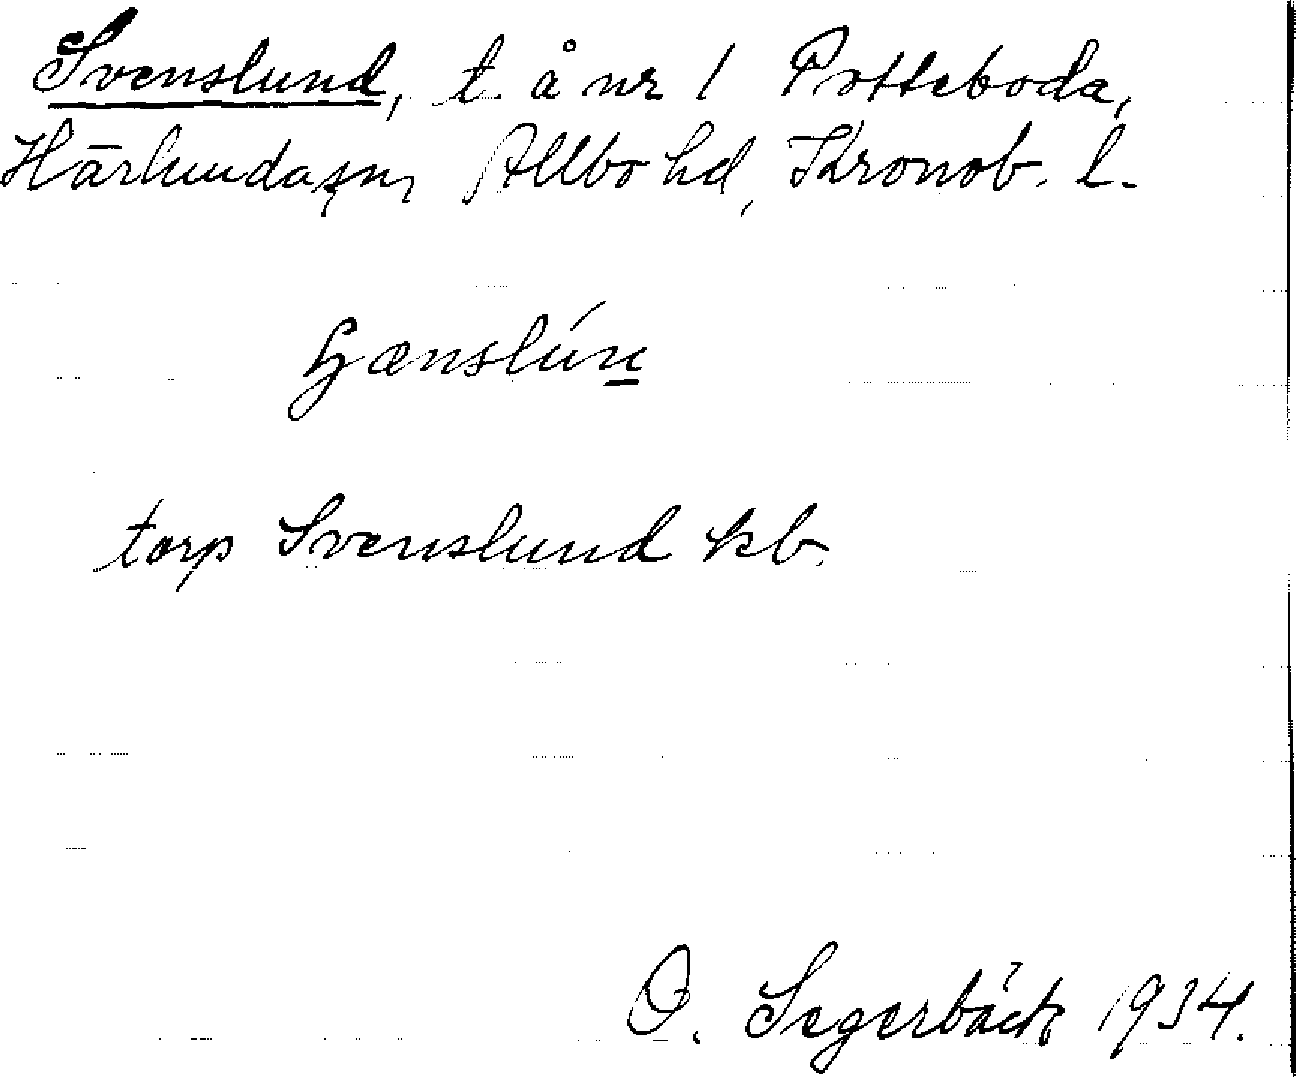 Svenslund, t. å nr 1 Potteboda,
Härlunda sn, Allbo hd, Kronob. l.
torp Svenslund kb.
B. Segerbäck 1934.